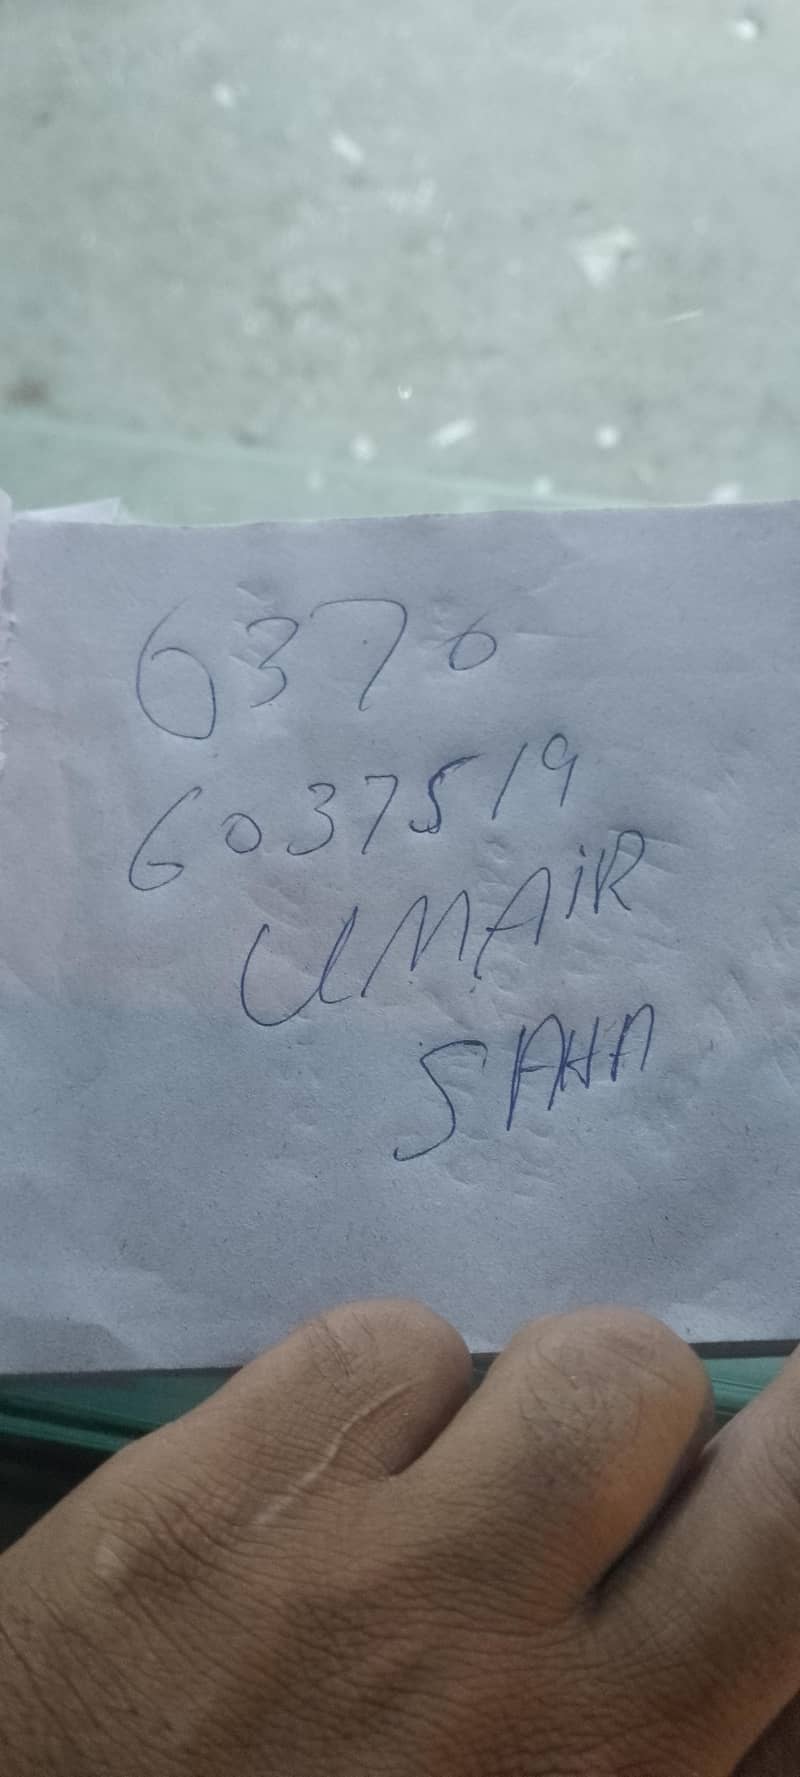 6370
6037519
UMAiR
SAHA